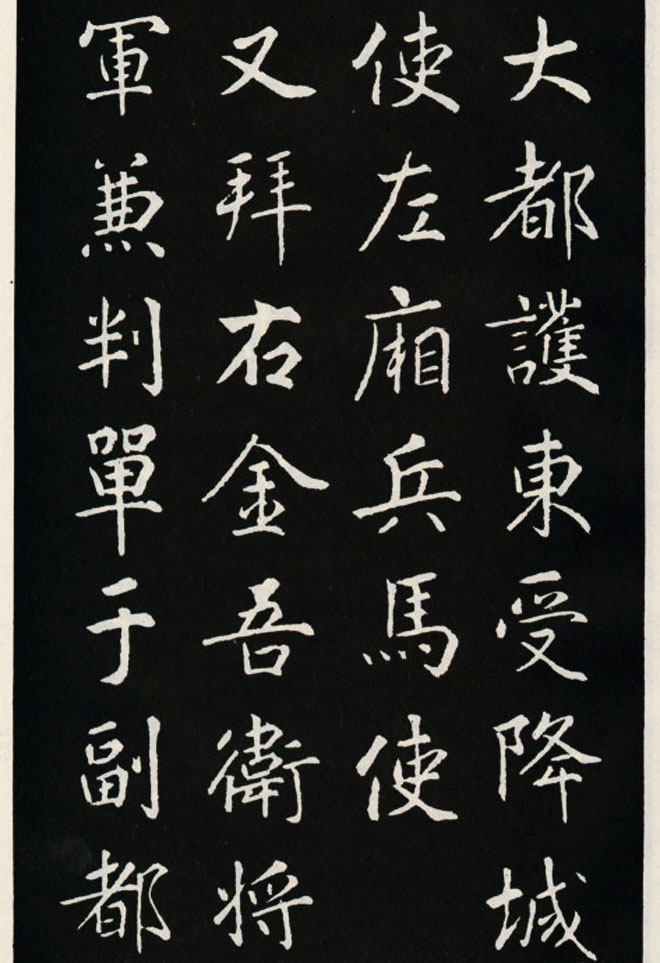 大都護東受降城
使左廂兵馬使
又拜右金吾衛将
軍兼判單于副都